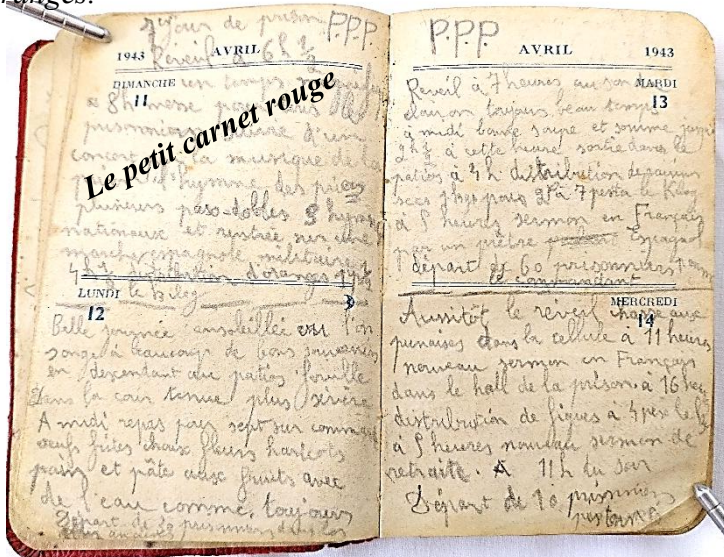 ranges.
7e jour de prison P.P.P
1943 AVRIL
Réveil à 6h ½
DIMANCHE
11
temps
à 8h messe pour
prisonniers d'un
concert la musique de la
l'hymne des
plusieurs paso-dobles 3 hymnes
nationaux et rentrée sur une
marche espagnole militaire
4h ½ distribution d'oranges
le kilog
Le petit carnet rouge
LUNDI
12
Belle journée ensoleillée l'on
songe à beaucoup de bons souvenirs
en descendant au patios fouille
Dans la cour tenue plus sévère
A midi repas pour sept sur commande
œufs frites choux fleurs haricots
pain et pâte aux fruits avec
de l'eau comme, toujours
Départ de 30 prisonniers dans
P.P.P
AVRIL 1943
MARDI
13
Reveil à 7 heures au son du
clairon toujours beau temps
à midi bonne soupe et somme jusqu'à
2h ½ à cette heure sortie dans le
patios à 4h distribution de raisins
secs 7 kgs pour à 7 peseta le Kilog
à 5 heures sermon en Français
par un prêtre Espagnol
départ de 60 prisonniers
le commandant
MERCREDI
14
Aussitôt le réveil chasse aux
punaises dans la cellule à 11 heures
nouveau sermon en Français
dans le hall de la prison à 16 heures
distribution de figues à 4 pese le k
à 5 heures nouveau sermon de
retraite. A 11h du soir
Départ de 10 prisonniers